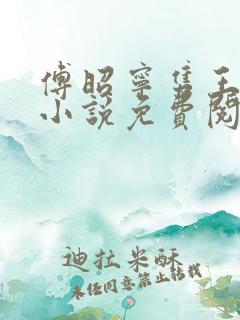 傅昭宁隽王
小说免费阅
迪拉米酥
未经同意禁止转载